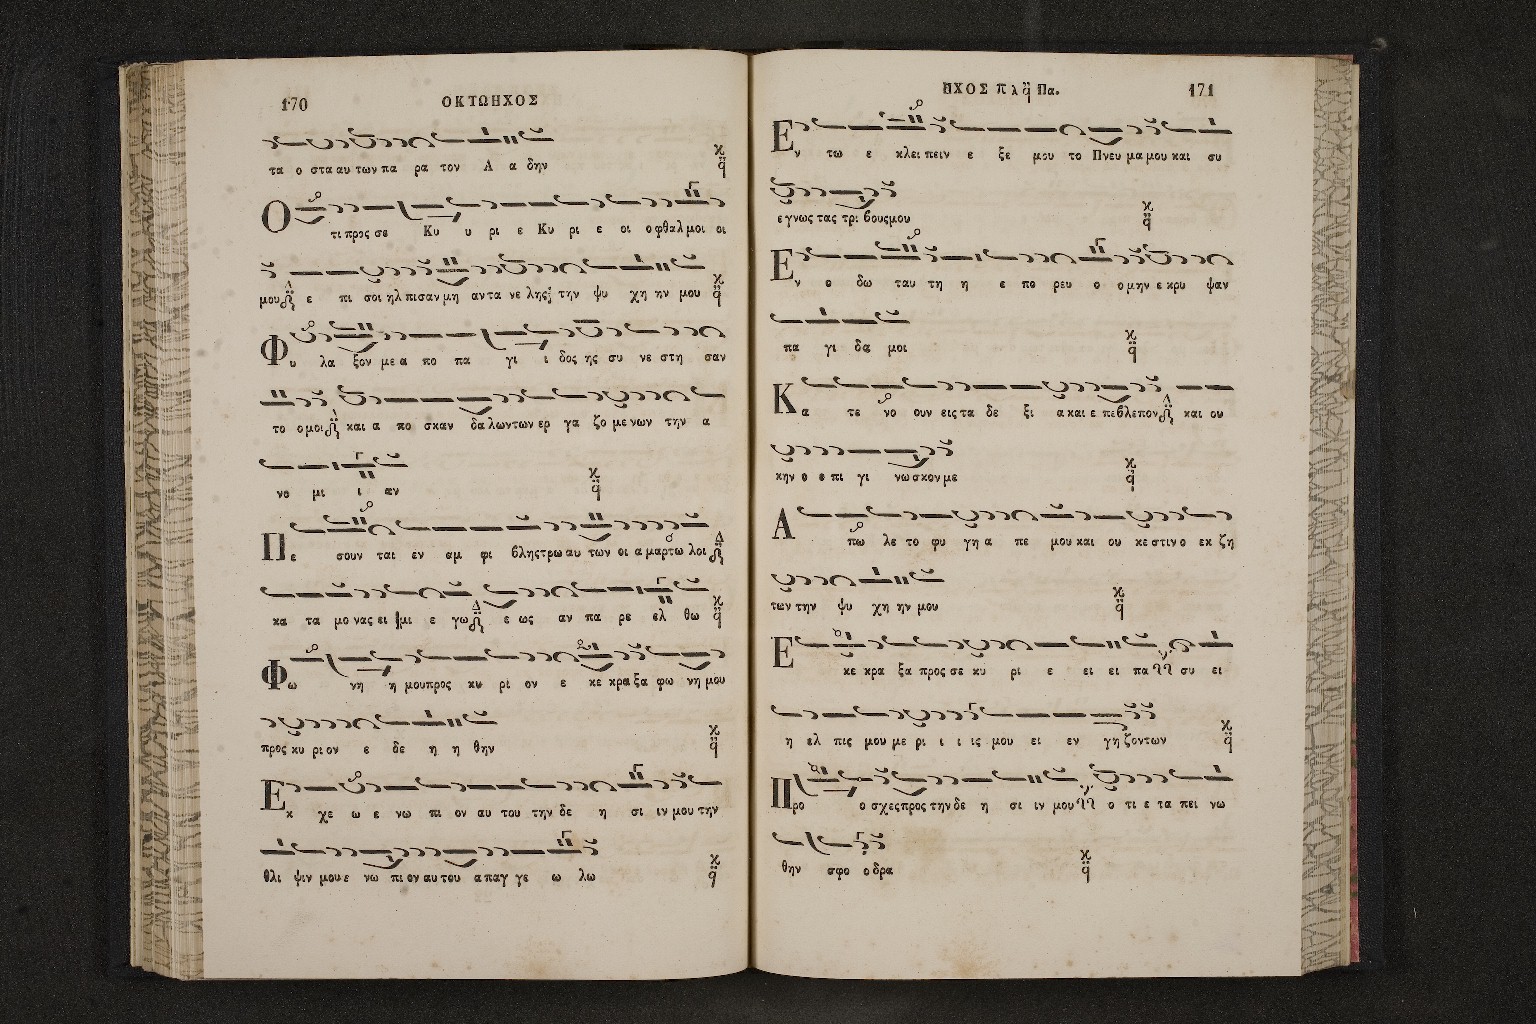 170 ΟΚΤΩΗΧΟΣ
τα ο στα αυ των πα ρα τον Α α δην
Ο τι προς σε Κυ υ ρι ε Κυ ρι ε οι ο φθαλ μοι οι
μου ε πι σοι ηλ πισαν μη αν τα νε λης την ψυ χη ην μου
Φυ λα ξον με α πο πα γι ι δος ης συ νε στη σαν
το ο μοι και α πο σκαν δα λων των ερ γα ζο με νων την α
νο μι ι αν
Πε σουν ται εν αμ φι βληστρω αυ των οι α μαρτω λοι
κα τα μο νας ει μι ε γω ε ως αν πα ρε ελ θω
Φω νη η μου προς κυ ρι ον ε κε κρα ξα φω νη μου
προς κυ ρι ον ε δε η η θην
Εκ χε ω ε νω πι ον αυ του την δε η σι ιν μου την
θλι ψιν μου ε νω πι ον αυ του α παγ γε ω λω
ΗΧΟΣ πλ ᾳ Πα. 171
Εν τω ε κλει πειν ε ξε μου το Πνευ μα μου και συ
ε γνως τας τρι βους μου
Εν ο δω ταυ τη η ε πο ρευ ο ο μην ε κρυ ψαν
πα γι δα μοι
Κα τε νο ουν εις τα δε ξι α και ε πε βλεπον και ου
κην ο ε πι γι νω σκον με
Α πω λε το φυ γη α πε μου και ου κε στιν ο εκ ζη
των την ψυ χη ην μου
Ε κε κρα ξα προς σε κυ ρι ε ει ει πα συ ει
η ελ πις μου με ρι ι ι ις μου ει εν γη ζοντων
Προ ο σχες προς την δε η σι ιν μου ο τι ε τα πει νω
θην σφο ο δρα